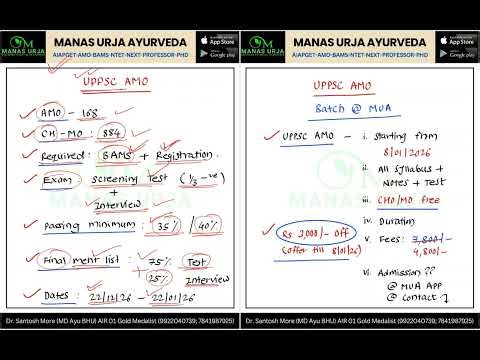 MANAS URJA
MANAS URJA AYURVEDA
AIAPGET-AMO-BAMS-NTET-NEXT-PROFESSOR-PHD
App Store
Google play
UPPSC AMO
AMO - 168
CH-MO : 884
Required : BAMS + Registration.
Exam : screening Test (1/3 -ve)
+
Interview
Passing minimum : 35% / 40%
Final merit list : 75% Test
+
25% Interview
Dates : 22/12/26 - 22/01/26
MANAS URJA
MANAS URJA AYURVEDA
AIAPGET-AMO-BAMS-NTET-NEXT-PROFESSOR-PHD
App Store
Google play
UPPSC AMO
Batch @ MUA
UPPSC AMO - i. Starting from
8/01/2026
ii. All syllabus +
Notes + Test
iii. CHO/MO free
iv. Duration
Rs 3,000/- Off
(offer till 8/01/26)
v. Fees: 7,800/-
4,800/-
vi. Admission ??
@ MUA APP
@ Contact
Dr. Santosh More (MD Ayu BHU) AIR 01 Gold Medalist (9922040739; 7841987925)
Dr. Santosh More (MD Ayu BHU) AIR 01 Gold Medalist (9922040739; 7841987925)